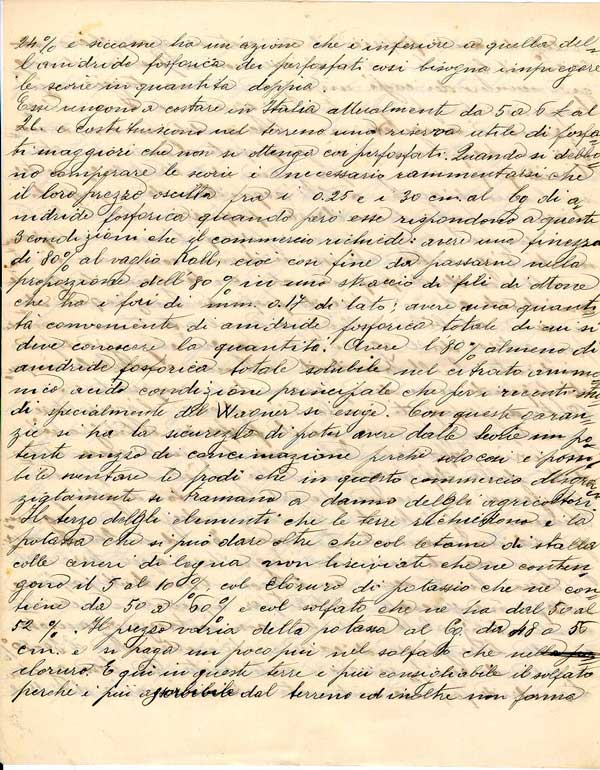 24% e siccome ha un'azione che è inferiore a quella del-
l'anidride fosforica dei perfosfati così bisogna impiegare
le scorie in quantità doppia.
Esse vengono a costare in Italia attualmente da 5 a 6 £ al
Ql. e costituiscono nel terreno una riserva utile di fosfa-
ti maggiori che non si ottenga coi perfosfati. Quando si debbo-
no comperare le scorie è necessario rammentarsi che
il loro prezzo oscilla fra i 0.25 e i 30 cm. al Cg di a-
nidride fosforica quando però esse rispondono a queste
3 condizioni che il commercio richiede: avere una finezza
di 80% al vaglio Kall, cioè così fine da passarne nella
proporzione dell'80% in uno staccio di fili di
che ha i fori di mm. 0.17 di lato; avere una quanti-
tà conveniente di anidride fosforica totale di cui si
deve conoscere la quantità. Avere l'80% almeno di
anidride fosforica totale solubile nel citrato ammo-
nico acido condizione principale che per i recenti stu-
di specialmente del Wagner si esige. Con queste garan-
zie si ha la sicurezza di poter avere dalle scorie un po-
tente mezzo di concimazione perchè solo così è possi-
bile sventare le frodi che in questo commercio
si tramano a danno degli agricoltori.
Il terzo degli elementi che le terre richiedono è la
potassa che si può dare oltre che col letame di stalla
colle ceneri di legna non lisciviate che ne conten-
gono il 5 al 10% col cloruro di potassio che ne con-
tiene da 50 a 60% e col solfato che ne ha dal 50 al
52%. Il prezzo varia della potassa al Cg. da 48 a 56
cm. e si paga un poco più nel solfato che nel
cloruro. E qui in queste terre è più consigliabile il solfato
perchè è più assorbibile dal terreno ed inoltre non forma